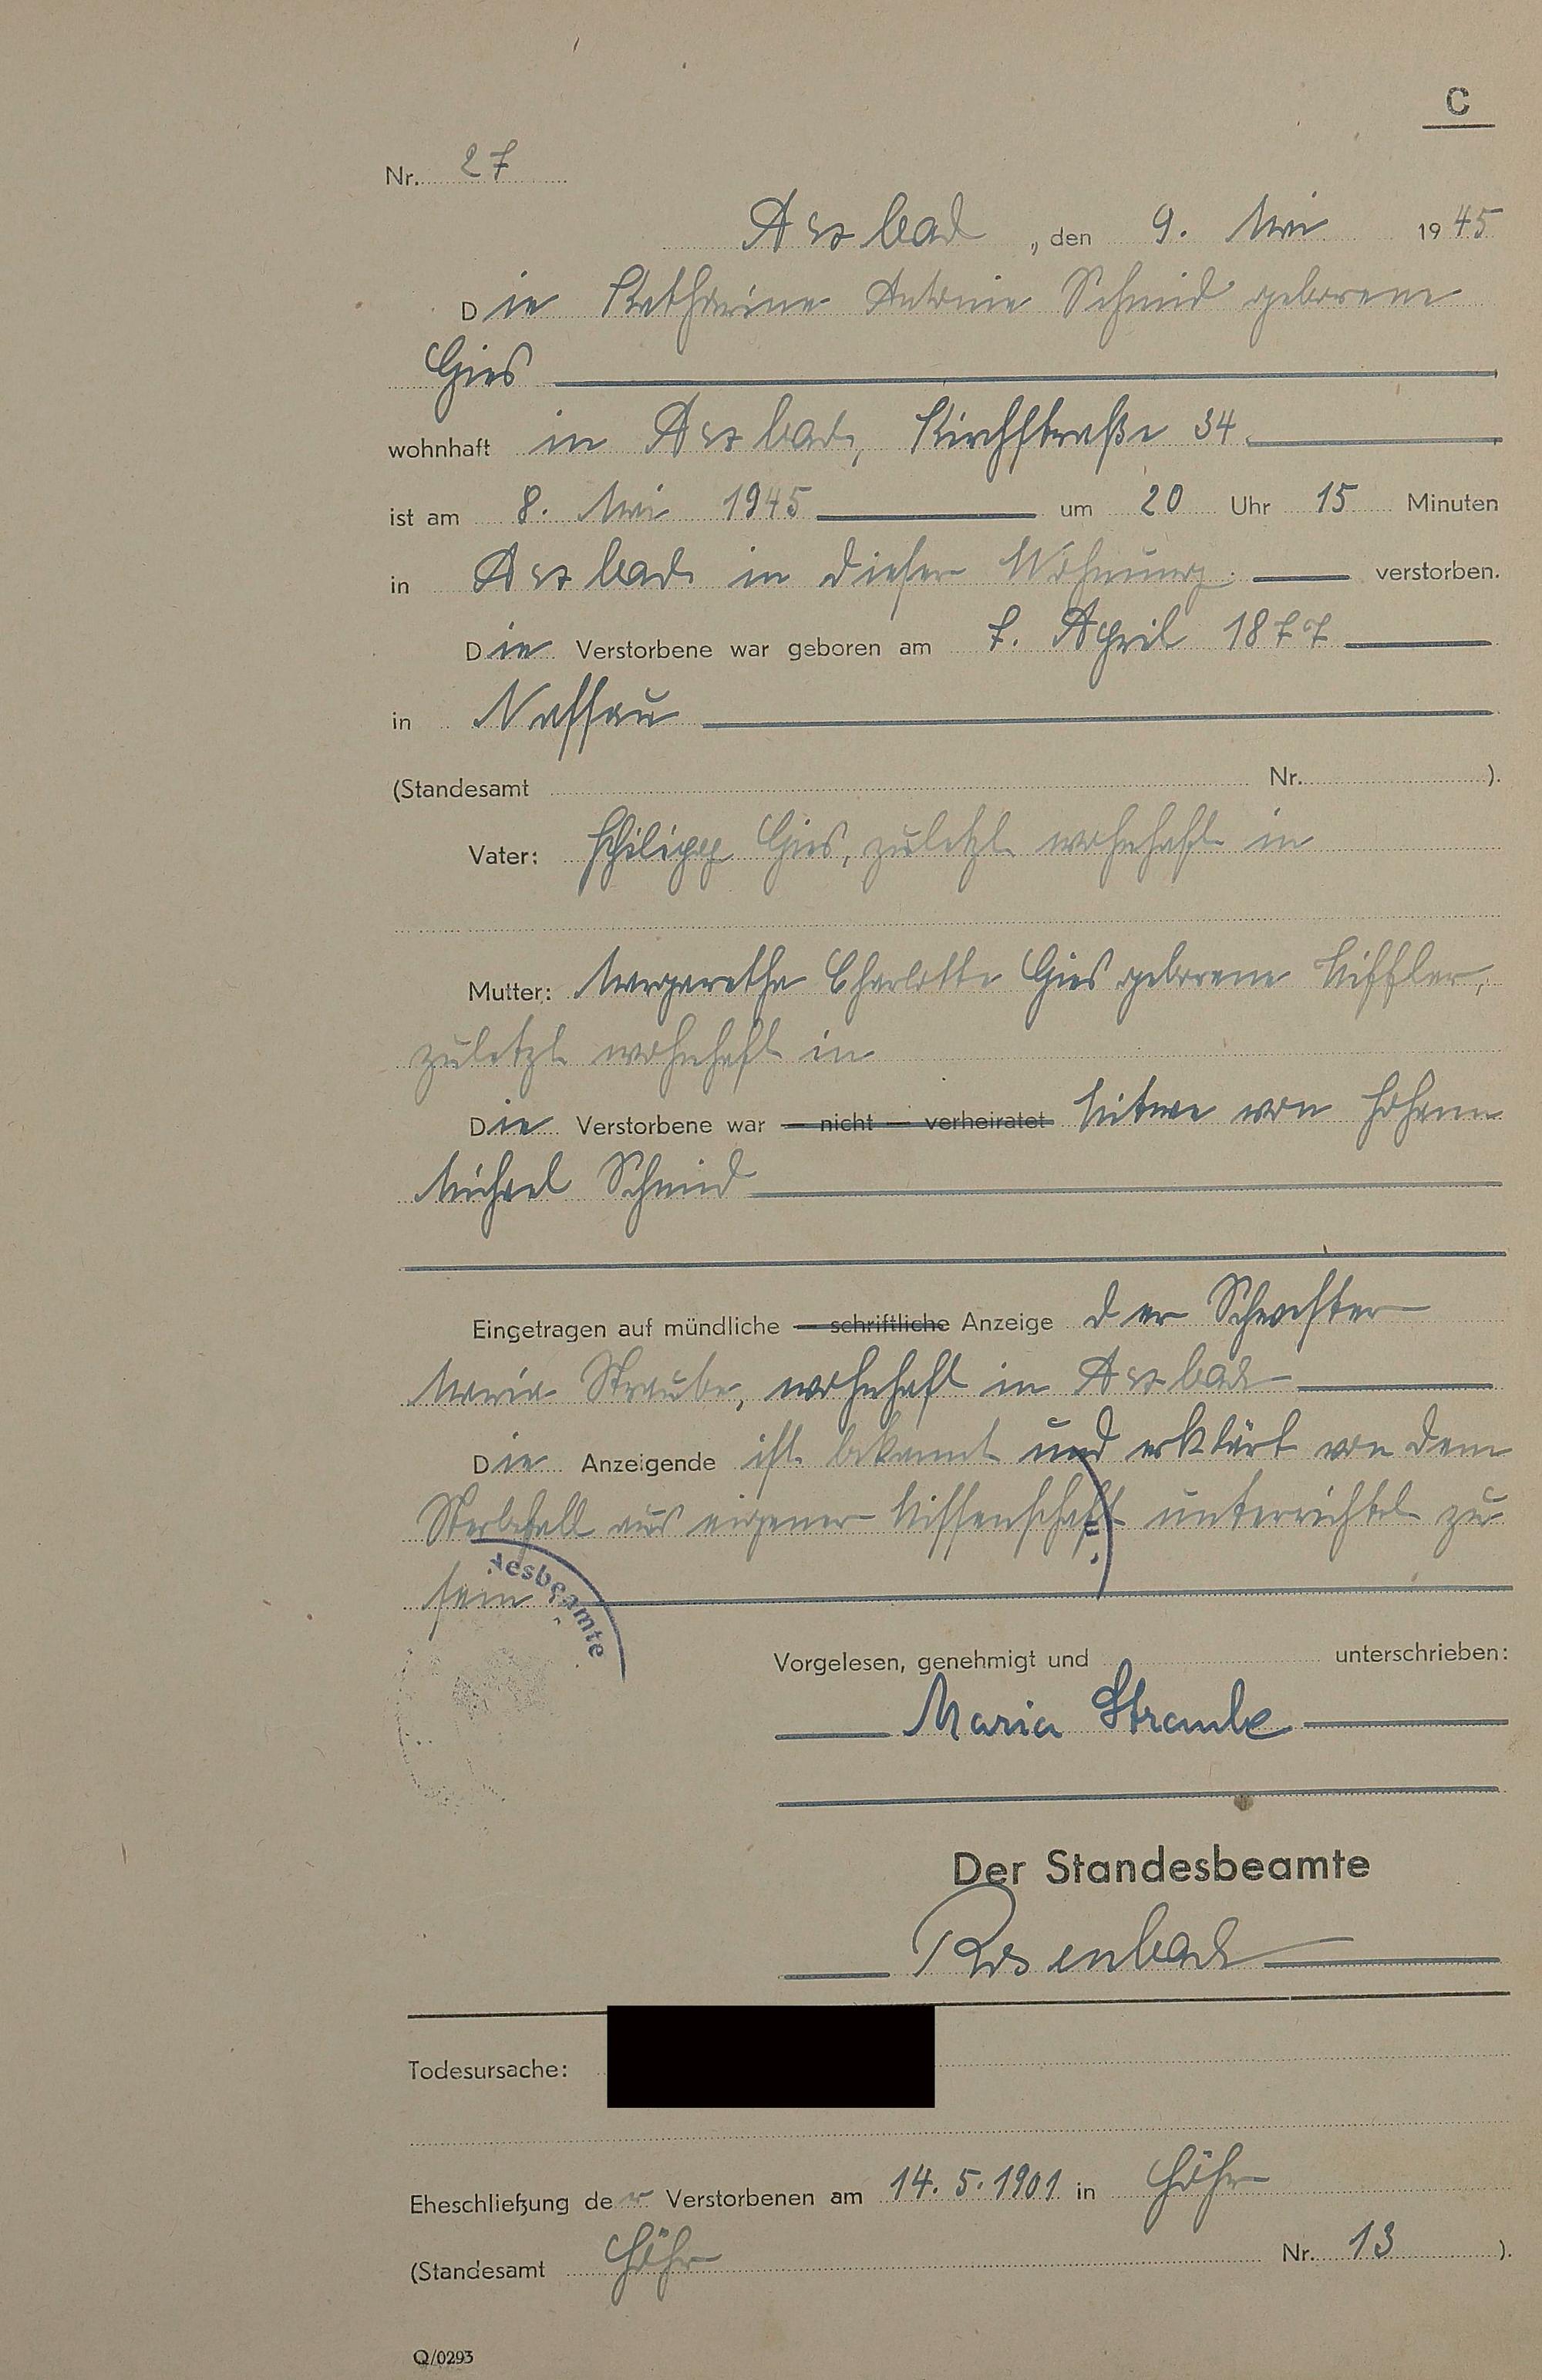 C
Nr. 27
Arzbach, den 9. Mai 1945
Die Katharine Antonie Schmid geborene
Gies
wohnhaft in Arzbach, Kirchstraße 34
ist am 8. Mai 1945 um 20 Uhr 15 Minuten
in Arzbach in dieser Wohnung verstorben.
Die Verstorbene war geboren am 7. April 1877
in Nassau
(Standesamt Nr. ).
Vater: Philipp Gies, zuletzt wohnhaft in
Mutter: Margaretha Charlotte Gies geborene
zuletzt wohnhaft in
Die Verstorbene war — nicht — verheiratet Witwe von Johann
Michael Schmid
Eingetragen auf mündliche — schriftliche Anzeige der Schwester
Maria Straube, wohnhaft in Arzbach
Die Anzeigende ist bekannt und erklärt von dem
Sterbefall aus eigener Wissenschaft unterrichtet zu
sein
desbeamte
Vorgelesen, genehmigt und unterschrieben:
Maria Straube
Der Standesbeamte
Rosenbach
Todesursache:
Eheschließung der Verstorbenen am 14. 5. 1901 in Höhr
(Standesamt Höhr Nr. 13 ).
Q/0293